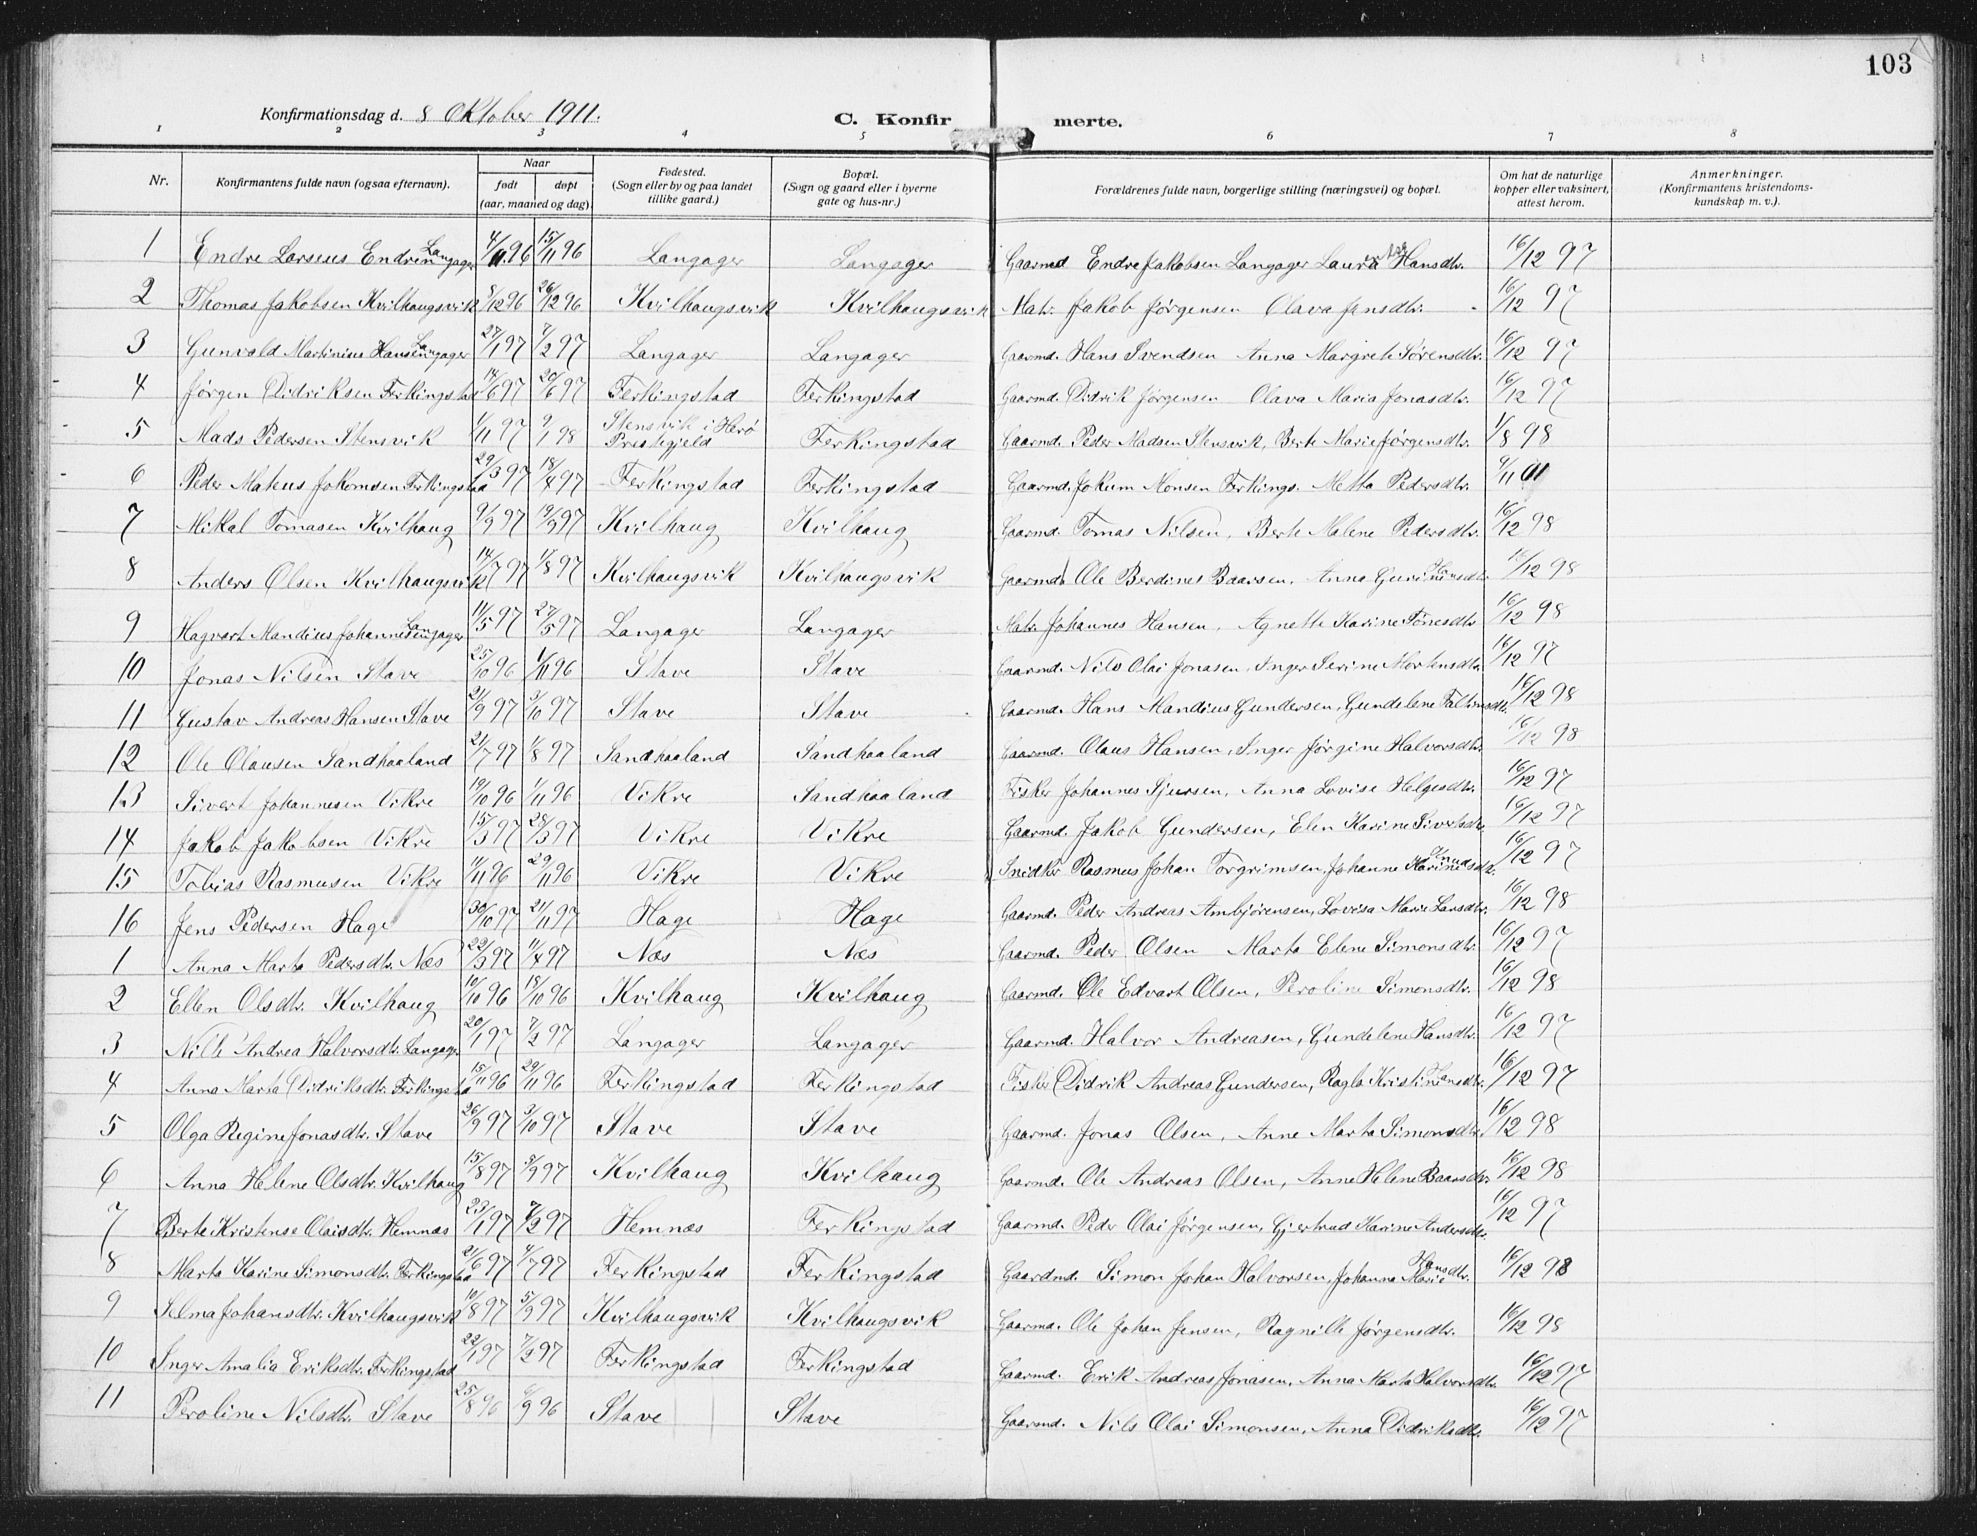 103
Konfirmationsdag d. 8 Oktober 1911.
C. Konfir merte.
1 2 3 4 5 6 7 8
Nr. Konfirmantens fulde navn (ogsaa efternavn). Naar født døpt (aar, maaned og dag) Fødested. (Sogn eller by og paa landet tillike gaard.) Bopæl. (Sogn og gaard eller i byerne gate og hus-nr.) Forældrenes fulde navn, borgerlige stilling (næringsvei) og bopæl. Om hat de naturlige kopper eller vaksinert, attest herom. Anmerkninger. (Konfirmantens kristendoms-kundskap m. v.).
1 Endre Larseus Endresen Langager 4/11 96 15/11 96 Langager Langager Gaarmd Endre Jakobsen Langager Laura Hansdtr. 16/12 97
2 Thomas Jakobsen Kvilhaugsvik 8/12 96 26/12 96 Kvilhaugsvik Kvilhaugsvik Matr. Jakob Jørgensen Olava Jensdtr. 16/12 97
3 Gunvald Martinius Hansen Langager 27/1 97 7/2 97 Langager Langager Gaarmd. Hans Svendsen Anna Margrete Sørensdtr. 16/12 97
4 Jørgen Didriksen Ferkingstad 14/6 97 20/6 97 Ferkingstad Ferkingstad Gaarmd. Didrik Jørgensen Olava Maria Jonasdtr. 16/12 97
5 Mads Pedersen Stensvik 1/11 97 9/1 98 Stensvik i Herø Prestegjeld Ferkingstad Gaarmd. Peder Madsen Stensvik, Berte Marie Jørgensdtr. 1/8 98
6 Peder Mateus Jokomsen Ferkingstad 29/3 97 18/4 97 Ferkingstad Ferkingstad Gaarmd. Jokum Monsen Ferkings. Metta Pedersdtr. 9/11 01
7 Mikal Tomasen Kvilhaug 9/9 97 19/9 97 Kvilhaug Kvilhaug Gaarmd. Tomas Nilsen, Berte Malene Pedersdtr. 16/12 98
8 Anders Olsen Kvilhaugsvik 14/7 97 1/8 97 Kvilhaugsvik Kvilhaugsvik Gaarmd. Ole Berdines Baarsen, Anna Guri Hansdtr 16/12 98
9 Hagvart Mandius Johannesen Langager 11/5 97 27/5 97 Langager Langager Matr. Johannes Hansen, Agnette Karine Tønesdtr 16/12 98
10 Jonas Nilsen Stave 25/10 96 1/11 96 Stave Stave Gaarmd. Nils Olai Jonasen, Inger Serine Mortensdtr. 16/12 97
11 Gustav Andreas Hansen Stave 21/9 97 3/10 97 Stave Stave Gaarmd. Hans Mandius Gundersen, Gundelene 16/12 98
12 Ole Olausen Sandhaaland 21/7 97 1/8 97 Sandhaaland Sandhaaland Gaarmd. Olaus Hansen, Inger Jørgine Halvorsdtr. 16/12 98
13 Sivert Johannesen Vikre 19/10 96 1/11 96 Vikre Sandhaaland Fisker Johannes Sjursen, Anna Lovise Helgesdtr. 16/12 97
14 Jakob Jakobsen Vikre 15/3 97 28/3 97 Vikre Vikre Gaarmd. Jakob Gundersen, Elen Karine Sivertsdtr. 16/12 97
15 Tobias Rasmusen Vikre 11/11 96 29/11 96 Vikre Vikre Snidker Rasmus Johan Torgrimsen, Johanne Karine Knudsdtr. 16/12 97
16 Jens Pedersen Hage 30/10 97 21/11 97 Hage Hage Gaarmd. Peder Andreas Ambjørensen, Lovisa Marie Larsdtr. 16/12 98
1 Anna Marta Pedersdtr. Næs 22/3 97 11/4 97 Næs Næs Gaarmd. Peder Olsen Marta Elene Simonsdtr. 16/12 97
2 Ellen Olsdtr. Kvilhaug 10/10 96 18/10 96 Kvilhaug Kvilhaug Gaarmd. Ole Edvart Olsen, Peroline Simonsdtr. 16/12 98
3 Nille Andrea Halvorsdtr. Langager 20/1 97 7/2 97 Langager Langager Gaarmd. Halvor Andreasen, Gundelene Hansdtr. 16/12 97
4 Anna Marta Didriksdtr. Ferkingstad 15/11 96 29/11 96 Ferkingstad Ferkingstad Fisker Didrik Andreas Gundersen, Ragla Kristine Hansdtr. 16/12 97
5 Olga Regine Jonasdtr. Stave 26/9 97 3/10 97 Stave Stave Gaarmd. Jonas Olsen, Anne Marta Simonsdtr. 16/12 98
6 Anna Helene Olsdtr. Kvilhaug 15/8 97 5/9 97 Kvilhaug Kvilhaug Gaarmd. Ole Andreas Olsen, Anne Helene Baarsdtr 16/12 98
7 Berte Kristense Olaisdtr. Hemnæs 23/1 97 7/2 97 Hemnæs Ferkingstad Gaarmd. Peder Olai Jørgensen, Gjertrud Karine Andersdtr. 16/12 97
8 Marta Karine Simonsdtr. Ferkingstad 21/6 97 4/7 97 Ferkingstad Ferkingstad Gaardmd. Simon Johan Halvorsen, Johanna Marie Hansdtr. 16/12 98
9 Selma Johansdtr. Kvilhaugsvik 10/8 97 5/9 97 Kvilhaugsvik Kvilhaugsvik Gaarmd. Ole Johan Jensen, Ragnille Jørgensdtr. 16/12 98
10 Inger Amalia Eriksdtr. Ferkingstad 22/1 97 7/2 97 Ferkingstad Ferkingstad Gaarmd. Erik Andreas Jonasen, Anna Marta Halvorsdtr. 16/12 97
11 Peroline Nilsdtr. Stave 25/8 96 6/9 96 Stave Stave Gaarmd. Nils Olai Simonsen, Anna Didriksdtr. 16/12 97